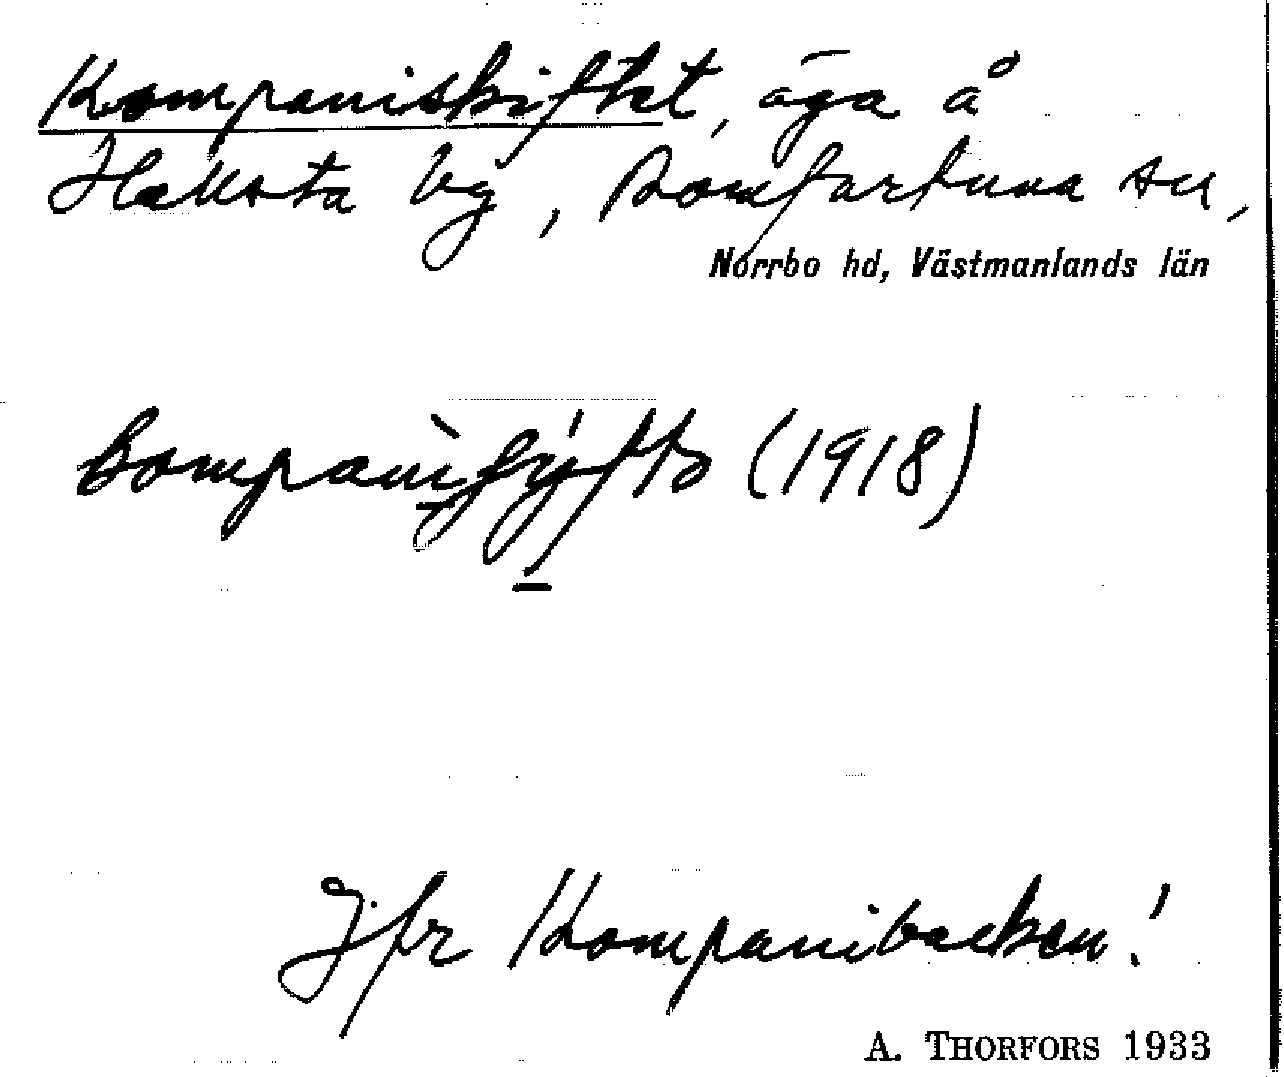 Kompaniskiftet, äga å
Hallsta by, Romfartuna sn,
Norrbo hd, Västmanlands län
(1918)
Jfr Kompanibacken!
A. THORFORS 1933